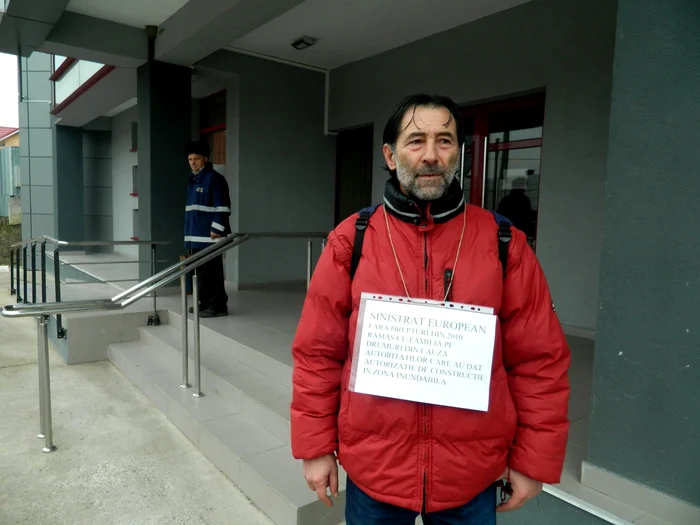 SINISTRAT EUROPEAN
FARA DREPTURI DIN 2010
RAMAS CU FAMILIA PE
DRUMURI DIN CAUZA
AUTORITATILOR CARE AU DAT
AUTORIZATIE DE CONSTRUCTIE
IN ZONA INUNDABILA